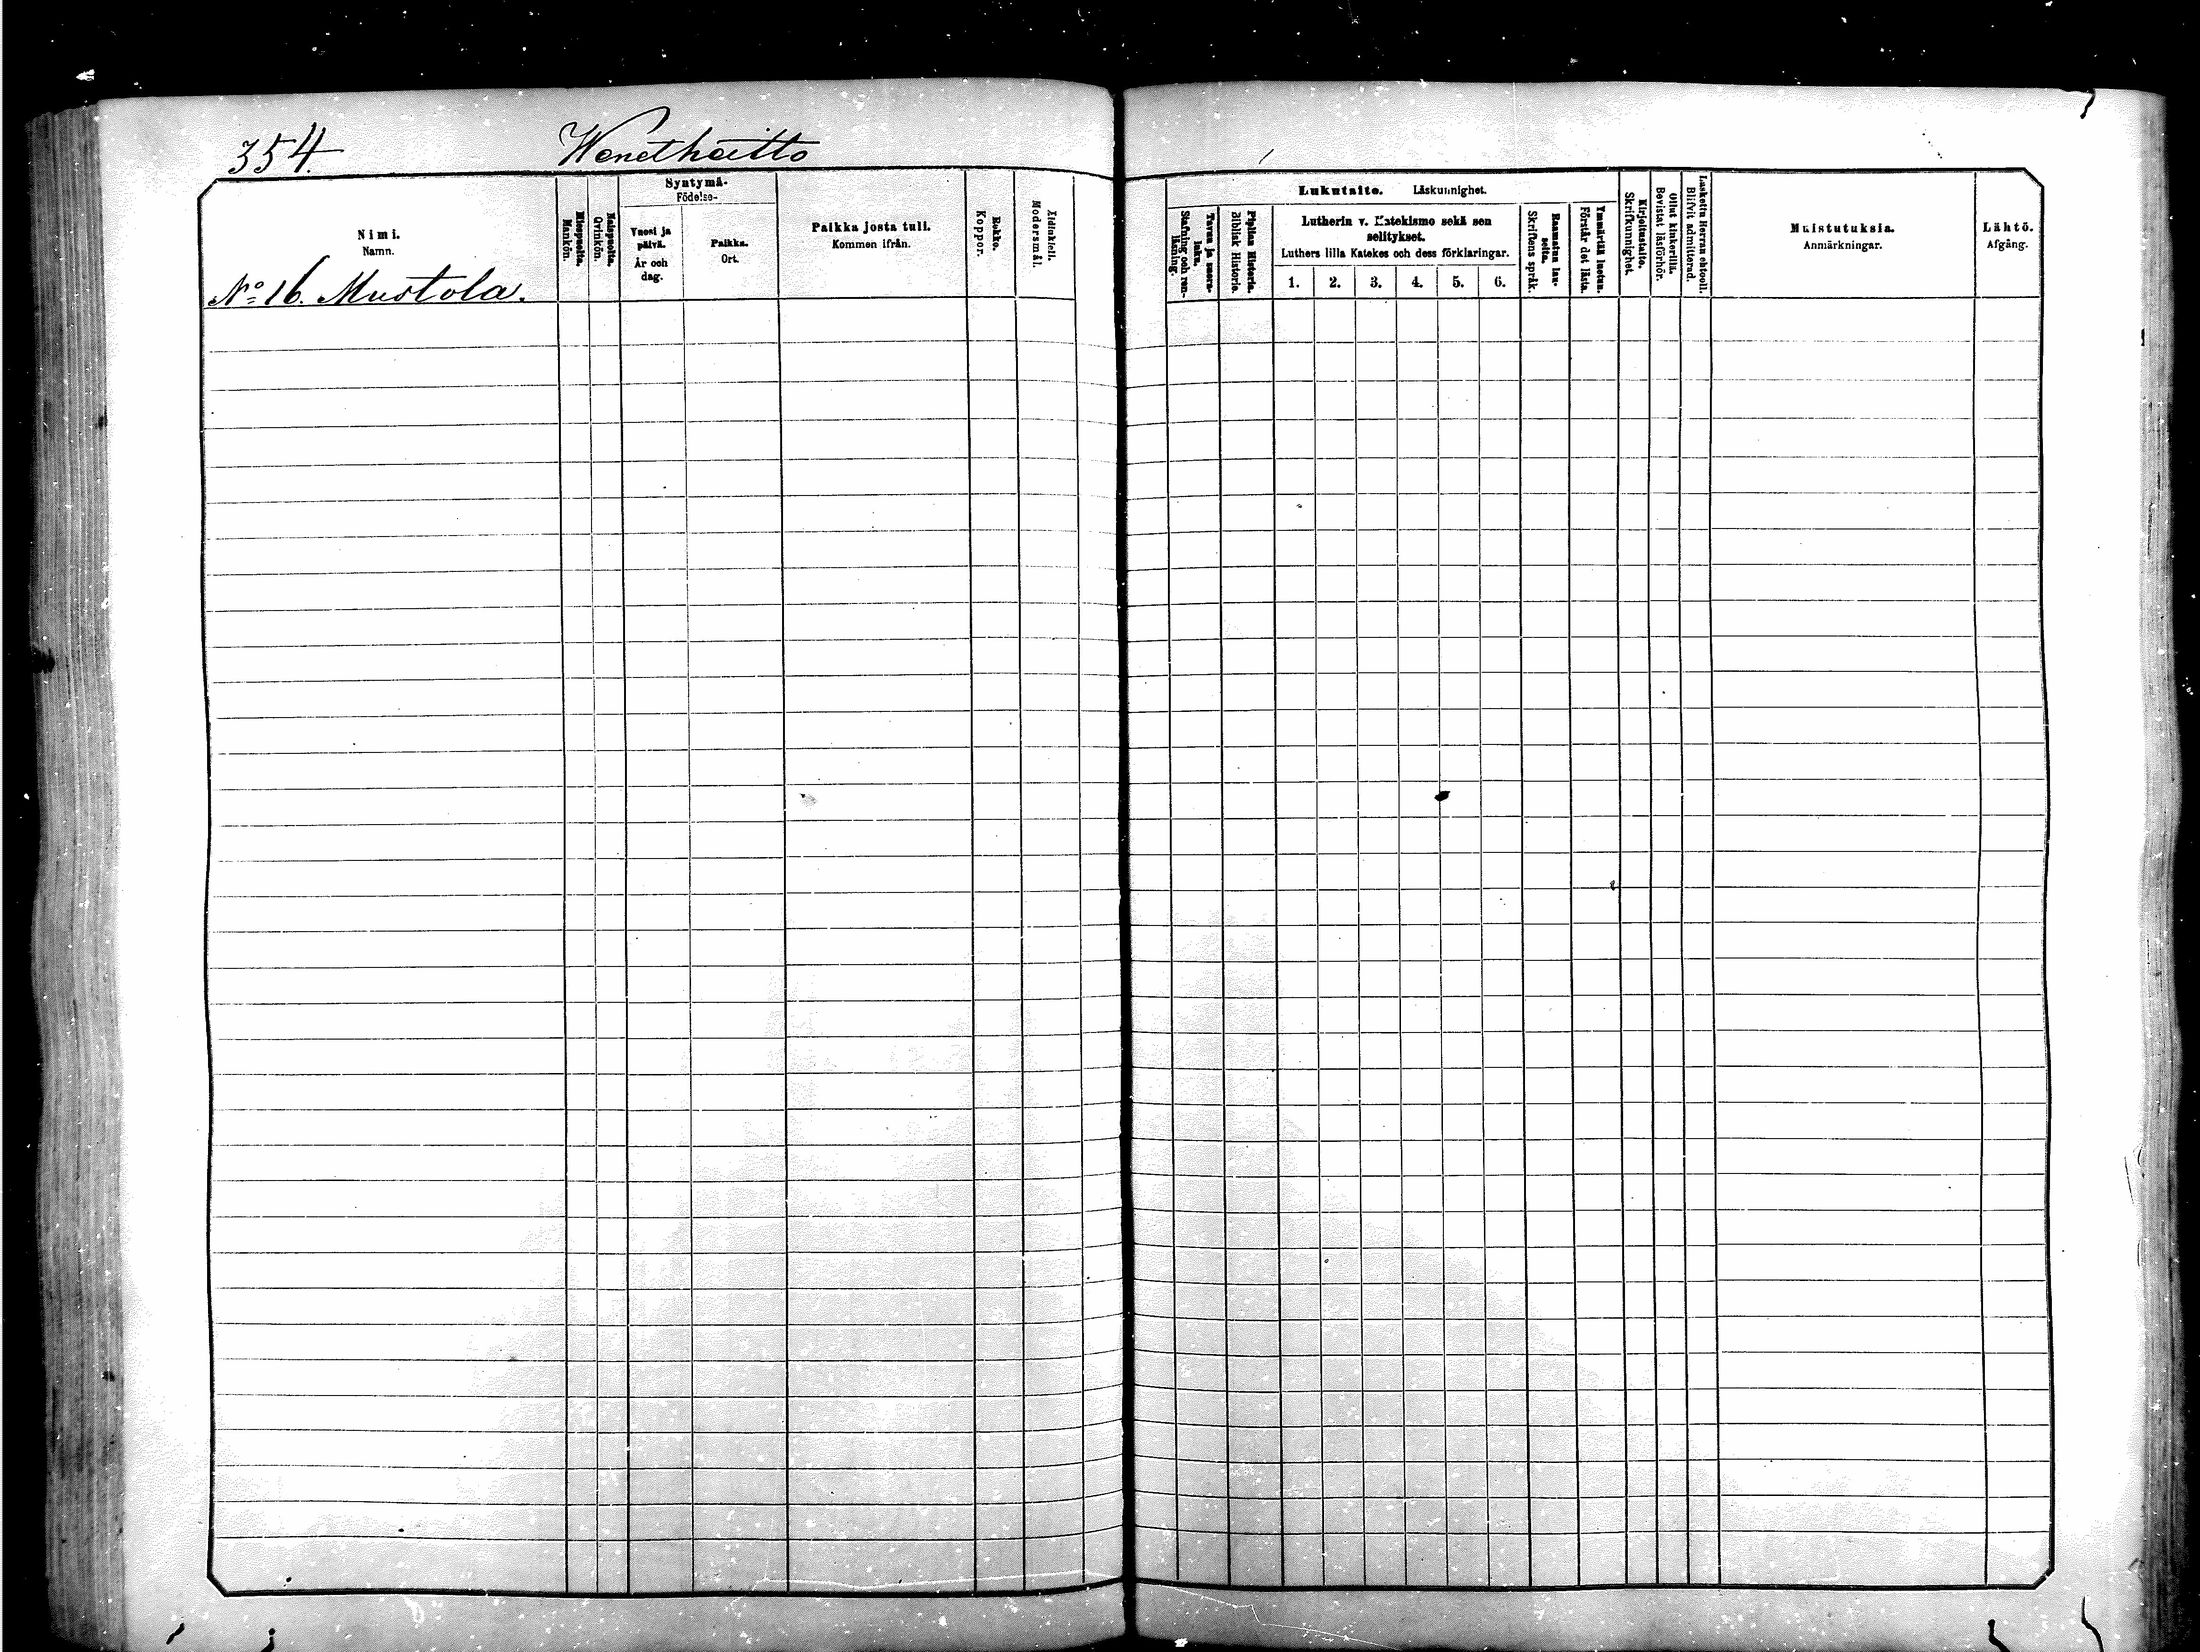 354.
Wenethoitto
Nimi.
Namn.
Miespuolia.
Mankön.
Naispuolia.
Qvinkön.
Syntymä-
Födelse-
Vuosi ja
päivä.
År och
dag.
Paikka.
Ort.
Paikka josta tuli.
Kommen ifrån.
Rokko.
Koppor.
Äidinkieli.
Modersmål.
No 16. Mustola.
Lukutaito. Läskunnighet.
Tavuu ja suora-
luku.
Stafning och ren-
läsning.
Piplian Historia.
Biblisk Historie.
Lutherin v. Katekismo sekä sen
selitykset.
Luthers lilla Katekes och dess förklaringar.
1. 2. 3. 4. 5. 6.
Raamatun lau-
seita.
Skriftens språk.
Ymmärtää luetun.
Förstår det lästa.
Kirjoitustaito.
Skrifkunnighet.
Ollut kinkerillä.
Bevistat läsförhör.
Laskettu Herran ehtool.
Blifvit admitterad.
Muistutuksia.
Anmärkningar.
Lähtö.
Afgång.